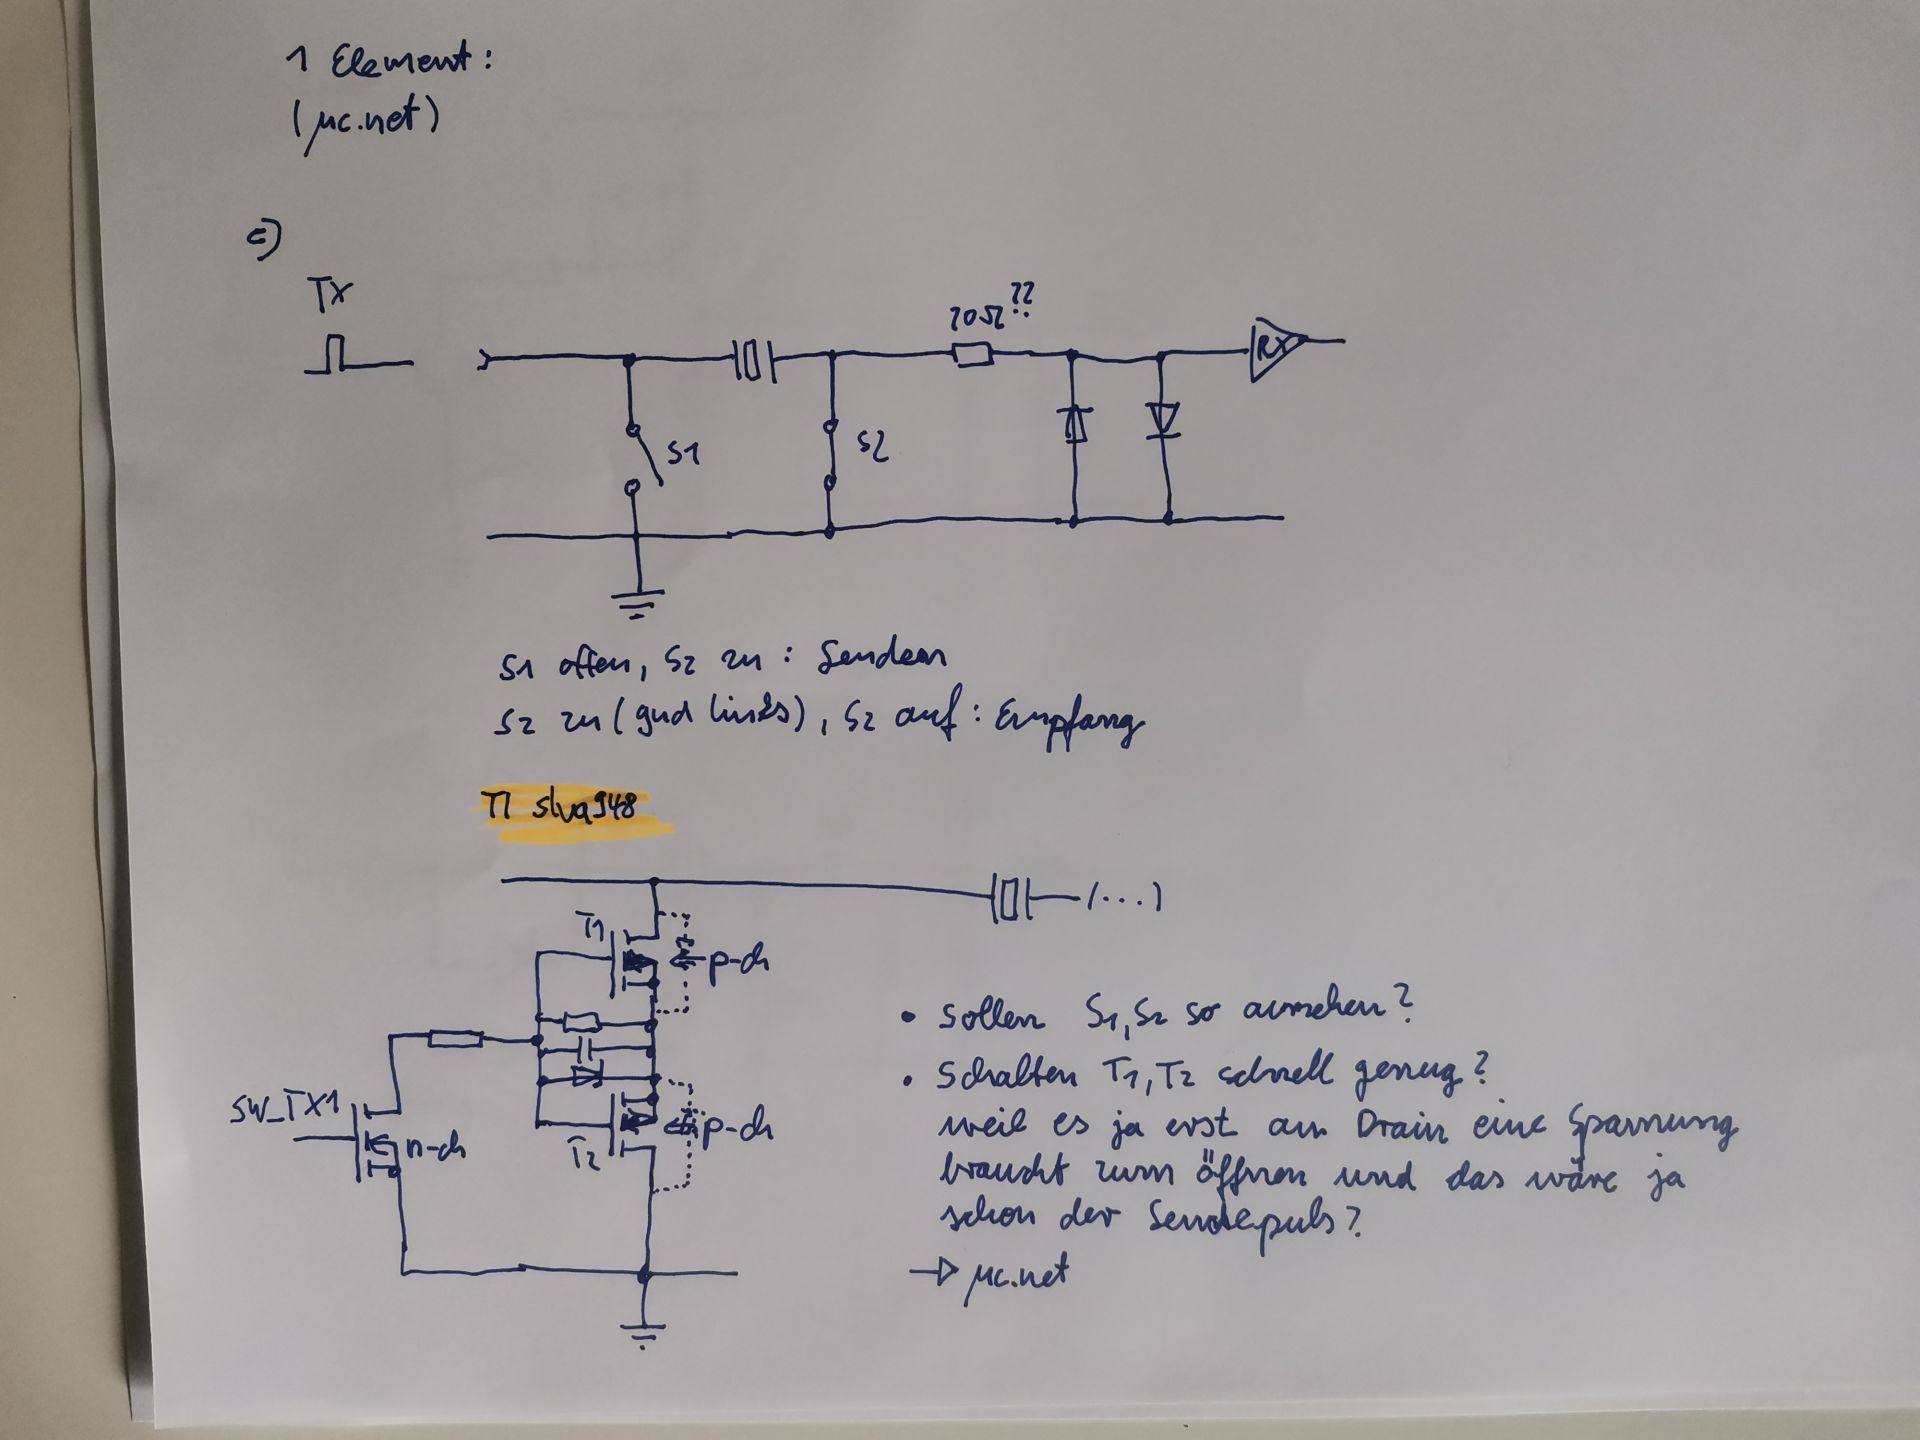 1 Element:
(µc.net)
c)
TX
20Ω??
RX
S1
S2
S1 offen, S2 zu: Senden
S2 zu (gnd links), S2 auf: Empfang
TI slva948
T1
p-ch
SW_TX1
n-ch
T2
p-ch
(...)
• Sollen S1, S2 so aussehen?
• Schalten T1, T2 schnell genug?
weil es ja erst am Drain eine Spannung
braucht zum öffnen und das wäre ja
schon der Sendepuls?
→ µc.net